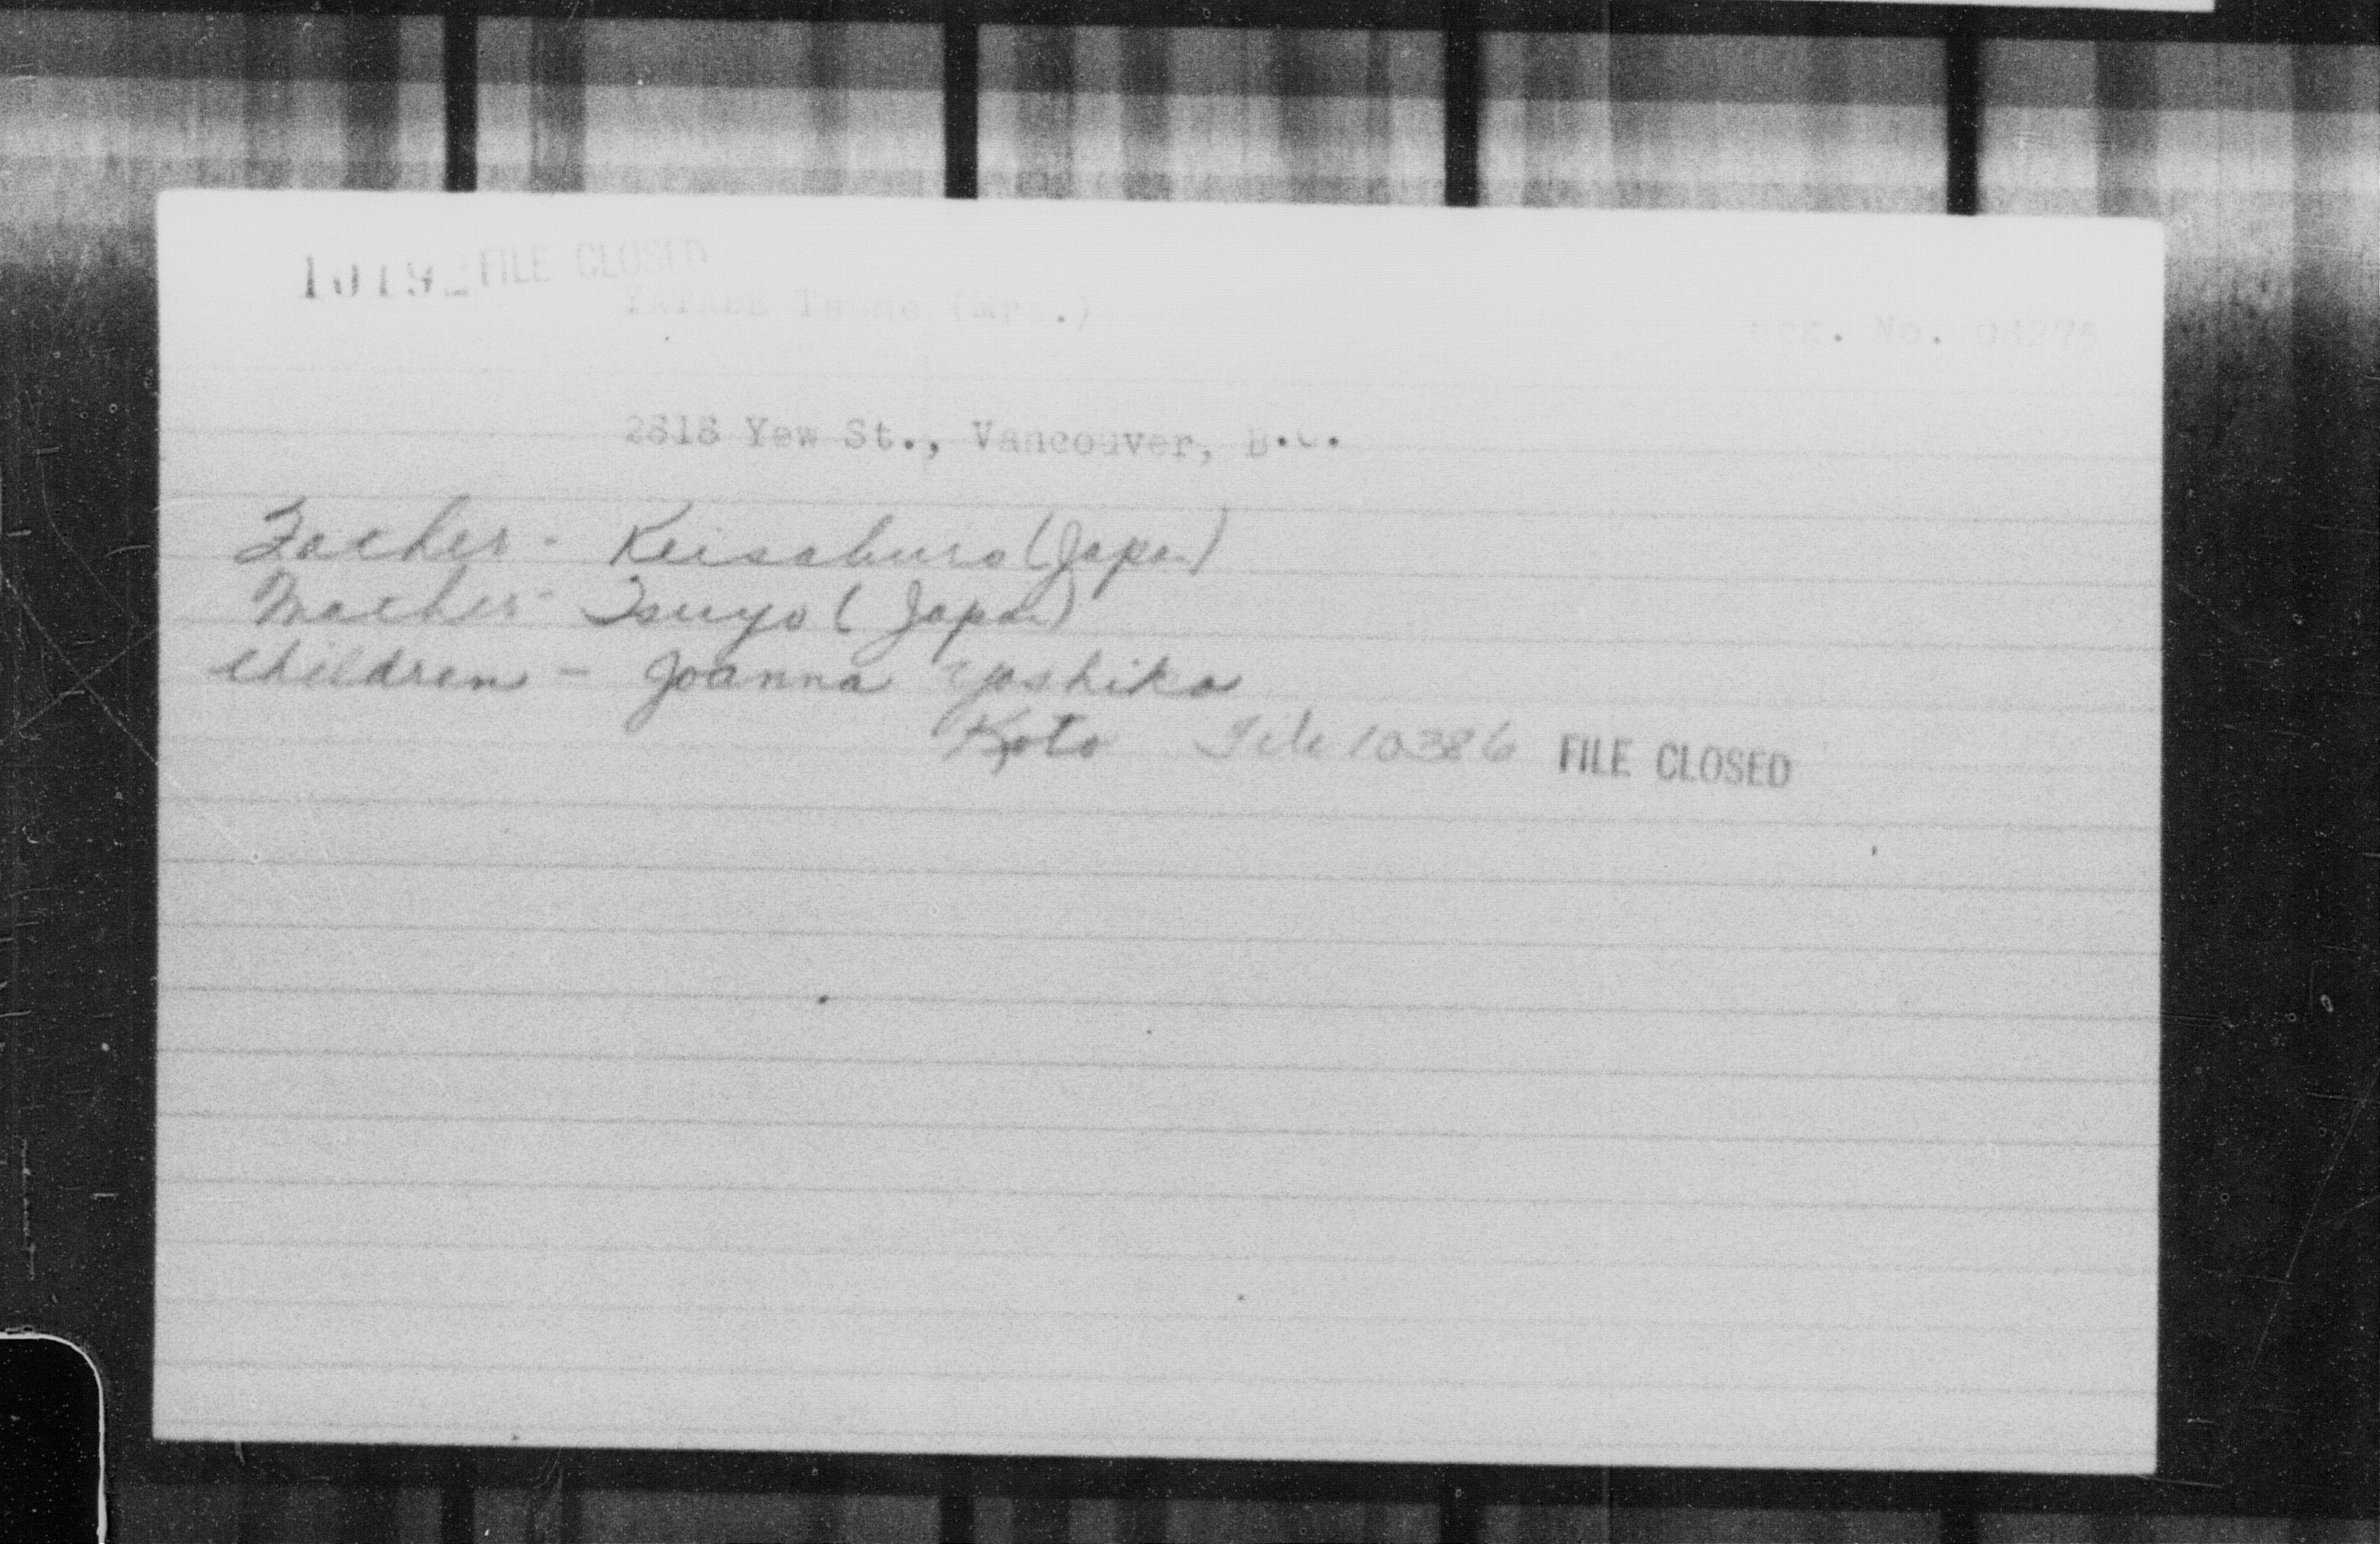 FILE CLOSED
No.
2818 Yew St., Vancouver, B.C.
Father - Keisaburo (Japan)
Mother - Tsuyo (Japan)
Children - Joanna Yoshiko
Koto File 10386 FILE CLOSED